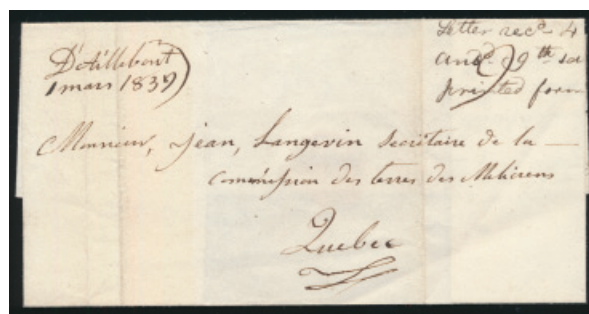 D'Aillebout
1 mars 1839
Letter recd. 4
and 9th sen
printed form
Monsieur, Jean, Langevin Secrétaire de la
commission des terres des Miliciens
Quebec